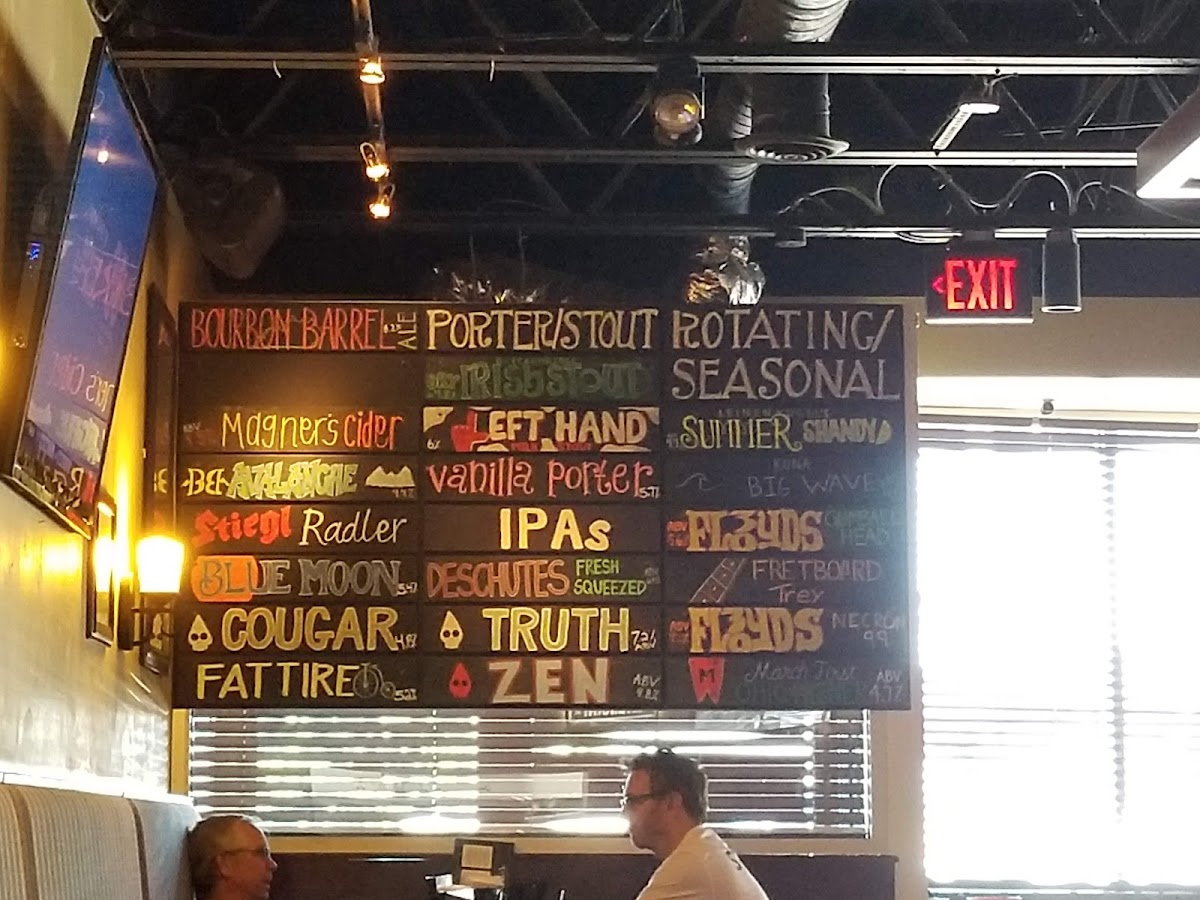 EXIT
BOURBON BARREL ALE
Magner's Cider
AVALANCHE
Stiegl Radler
BLUE MOON
COUGAR
FAT TIRE
PORTER/STOUT
DRY IRISH STOUT
6% LEFT HAND
MILK STOUT
Vanilla Porter 5.7%
IPAs
DESCHUTES FRESH SQUEEZED
TRUTH
ZEN ABV 4.8%
ROTATING/
SEASONAL
SUMMER SHANDY
KONA
BIG WAVE
FLOYDS
HEAD
FRETBOARD
Trey
FLOYDS NECRON
99
March First ABV
4.7%